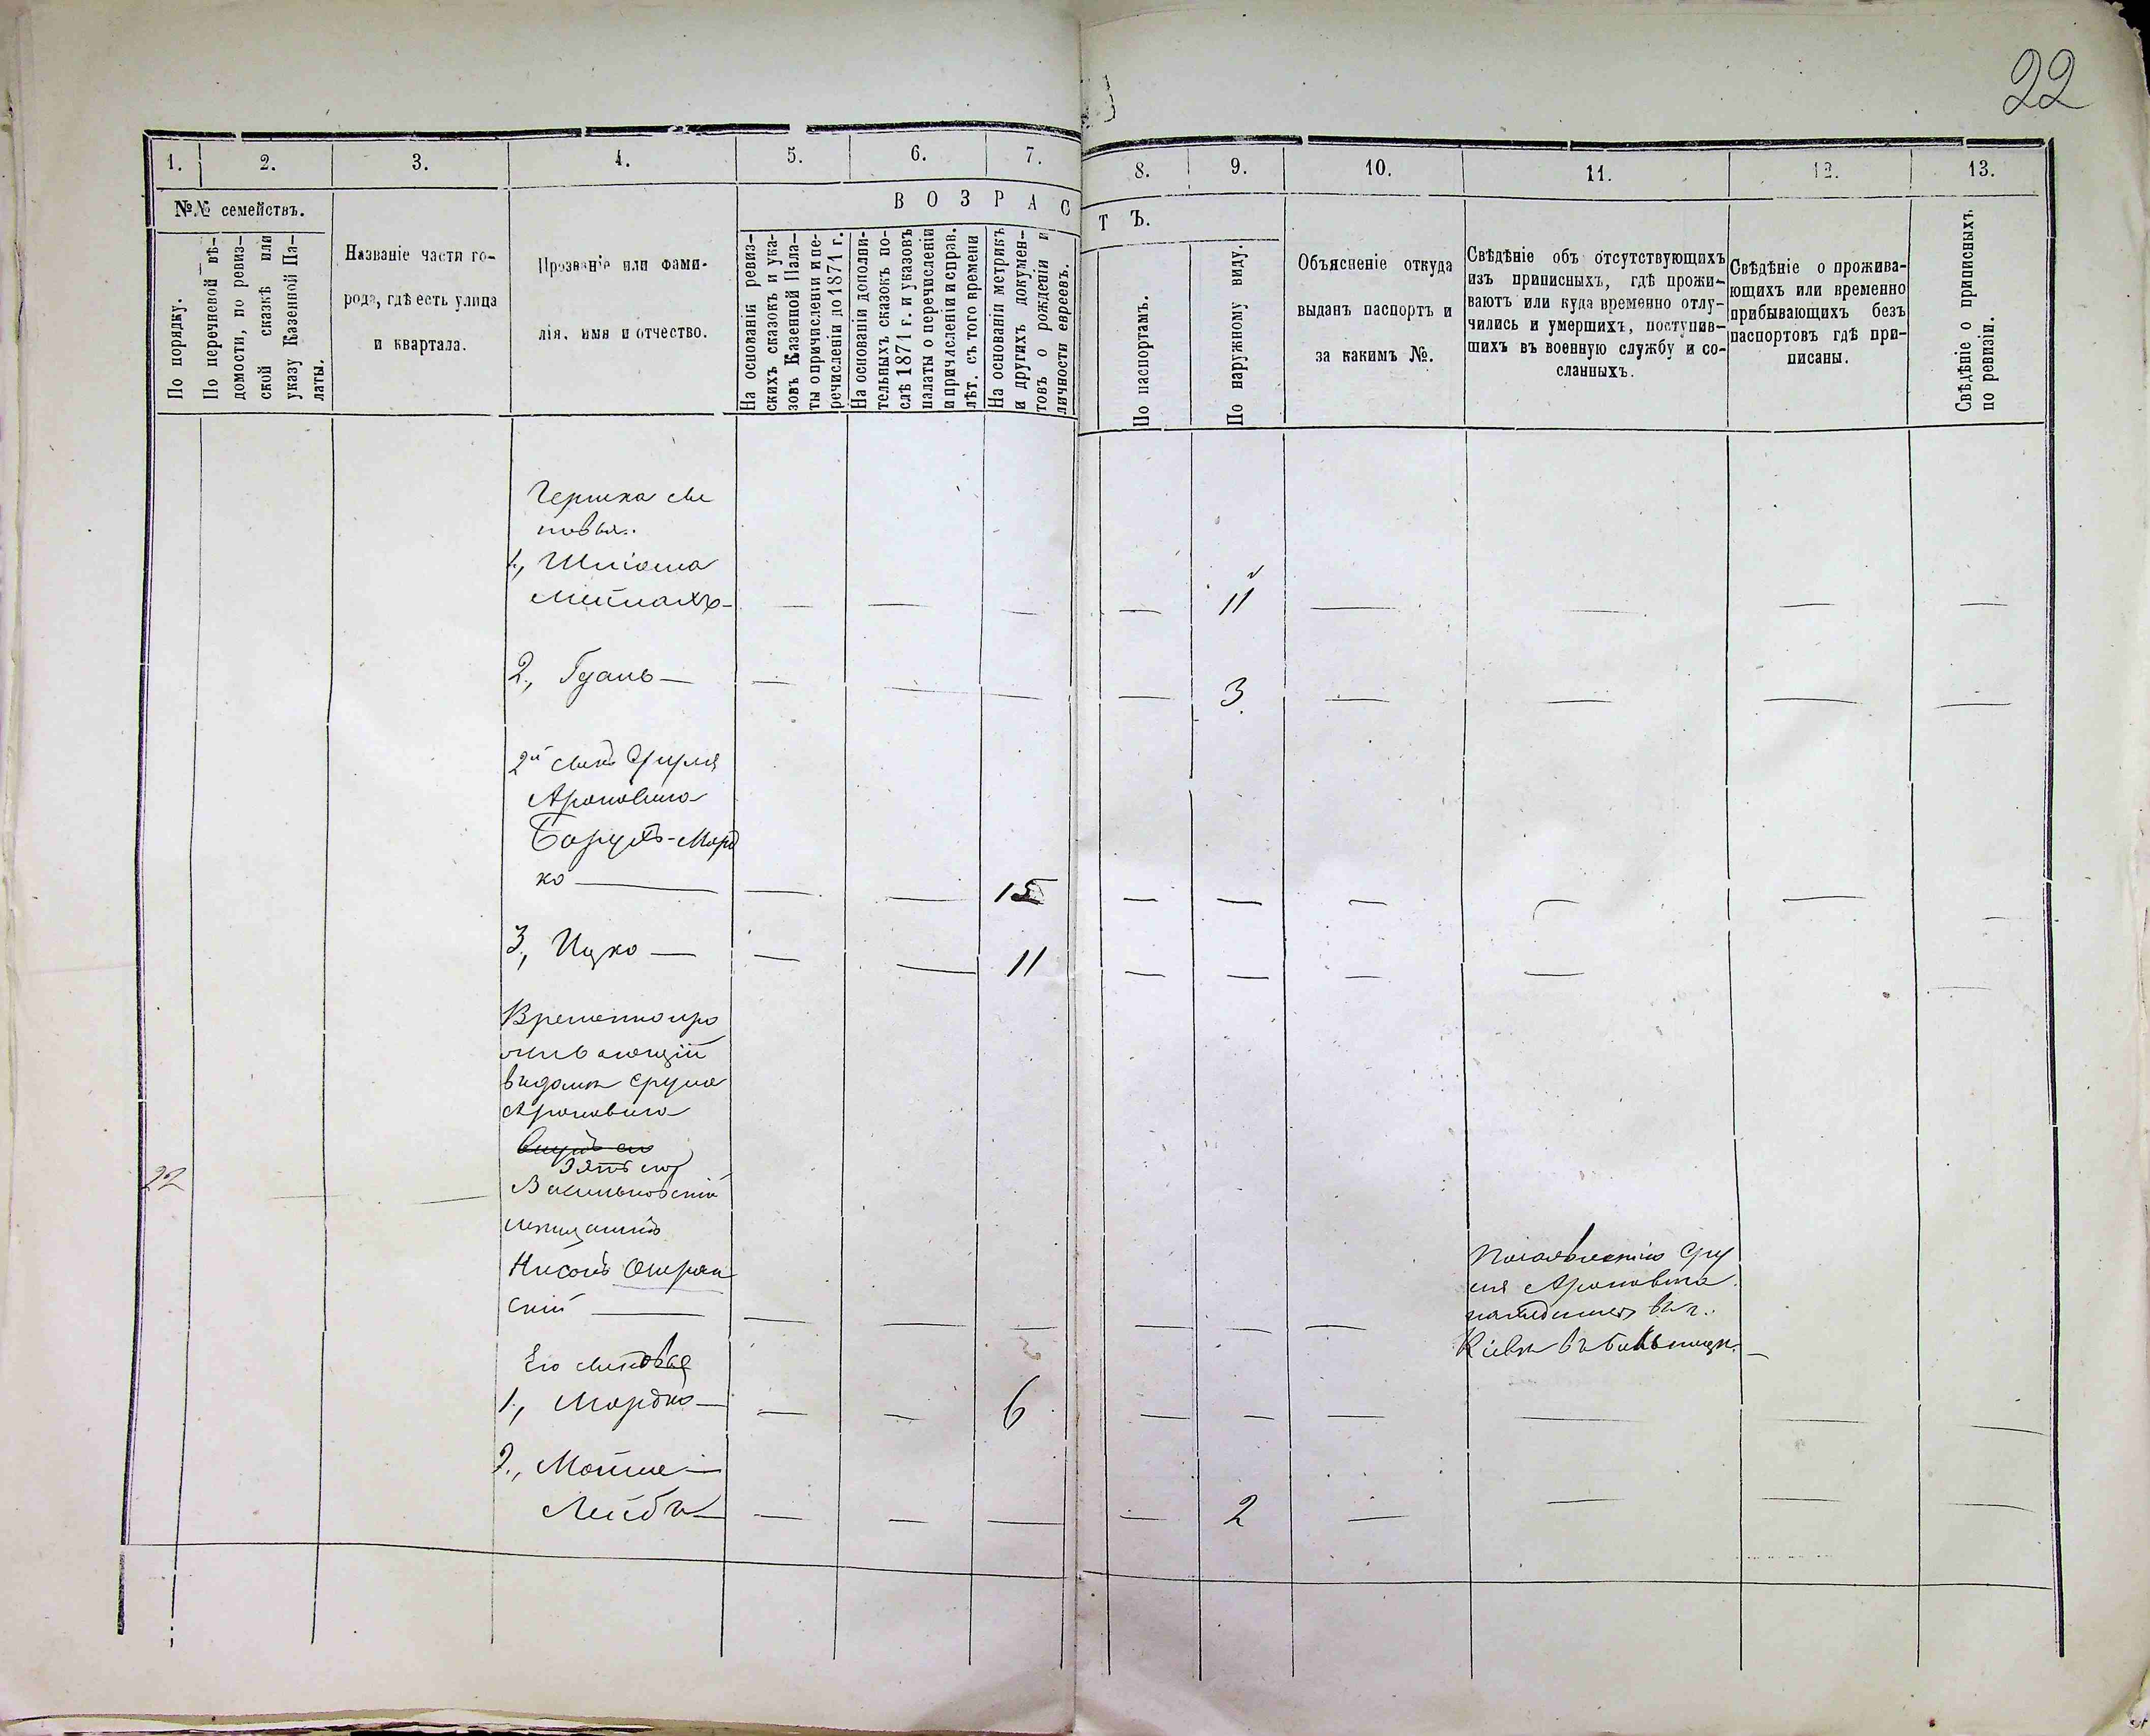 22
1.
2.
3.
4.
5.
6.
7.
8.
9.
10.
11.
12.
13.
№№ семействъ.
В О З Р А С Т Ъ.
По порядку.
По перечневой вѣ-
домости, по ревиз-
ской сказкѣ или
указу Казенной Па-
латы.
Названіе части го-
рода, гдѣ есть улица
и квартала.
Прозваніе или фами-
лія, имя и отчество.
На основаніи ревиз-
скихъ сказокъ и ука-
зовъ Казенной Пала-
ты о причисленіи и пе-
речисленіи до 1871 г.
На основаніи дополни-
тельныхъ сказокъ по-
слѣ 1871 г. и указовъ
палаты о перечисленіи
и причисленіи и справ.
лѣт. съ того времени
На основаніи метрикъ
и другихъ докумен-
товъ о рожденіи и
личности евреевъ.
По паспортамъ.
По наружному виду.
Объясненіе откуда
выданъ паспортъ и
за какимъ №.
Свѣдѣніе объ отсутствующихъ
изъ приписныхъ, гдѣ прожи-
ваютъ или куда временно отлу-
чились и умершихъ, поступив-
шихъ въ военную службу и со-
сланныхъ.
Свѣдѣніе о прожива-
ющихъ или временно
прибывающихъ безъ
паспортовъ гдѣ при-
писаны.
Свѣдѣніе о приписныхъ
по ревизіи.
Гершка сы
новья.
1., Шліома
— — — — 11 — — — —
2., — — — — — 3 — — — —
2й сынъ Сруля
Ароновича
Борухъ-Морд
ко — — — 15 — — — — — —
3, Ицко — — — 11 — — — — —
Временно про
живающій
въ домѣ Сруля
Ароновича
Зять его
22 — — Васильковскій
мѣщанинъ
Нисонъ
скій — — — — — — —
По заявленію Сру
ля Ароновича
находится въ г.
Кіевѣ въ больницѣ —
Его сыновья
1., Мордко — — — 6 — — — — — —
2., Мошко —
Лейба — — — — — 2 — — — —